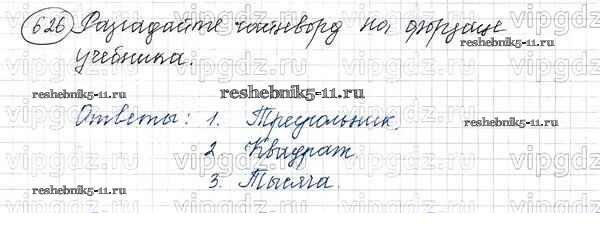 626 Разгадайте чайнворд на форзаце
учебника.
reshebnik5-11.ru
reshebnik5-11.ru
Ответы: 1. Треугольник.
2 Квадрат.
3. Тысяча.
reshebnik5-11.ru
reshebnik5-11.ru
vipgdz.ru vipgdz.ru vipgdz.ru vipgdz.ru